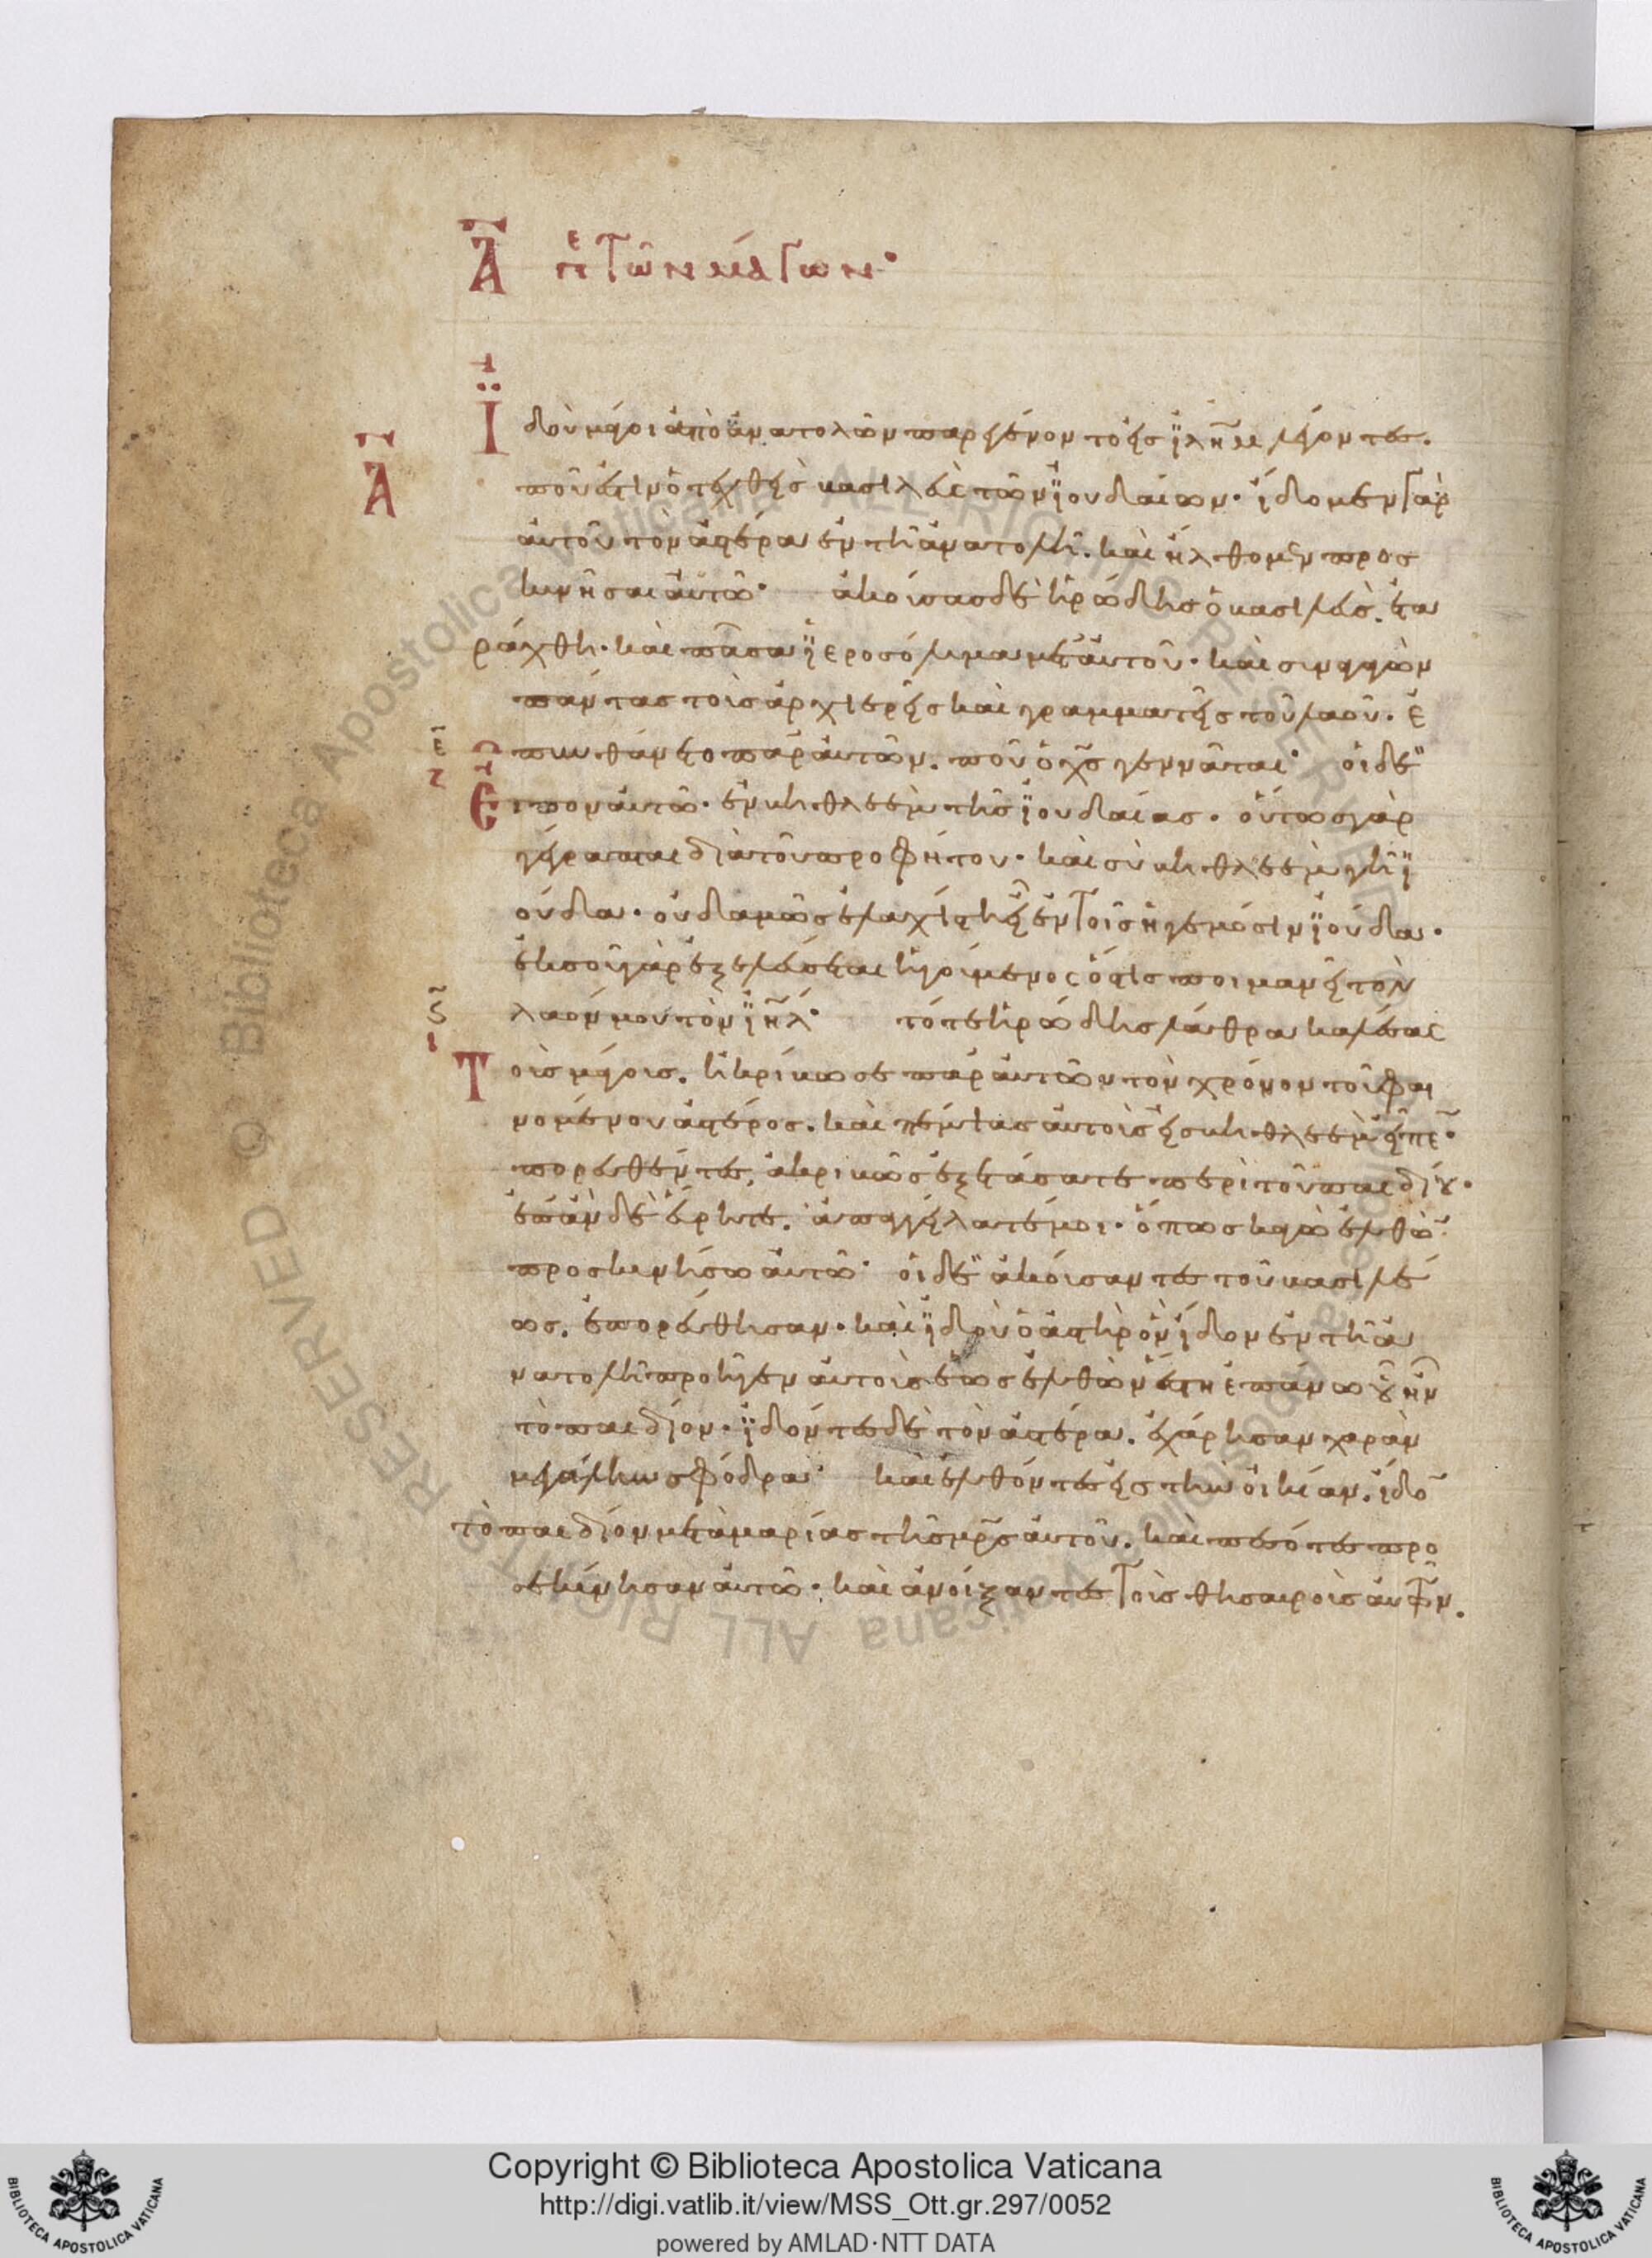 Α πε τῶν μάγων·
Ϊδοὺ μάγοι ἀπὸ ἀνατολῶν παρεγένοντο εἰς ϊλῆμ λέγοντες.
Α ποῦ ἐστιν ὁ τεχθεὶς βασιλεὺς τῶν ϊουδαίων· ἴδομεν γὰρ
αὐτοῦ τὸν ἀστέρα ἐν τῆ ἀνατολῆ. καὶ ἤλθομεν προσ
κυνῆσαι αὐτῶ· ἀκούσας δὲ ἡρώδης ὁ βασιλεὺς. ἐτα
ράχθη· καὶ πᾶσα ϊεροσόλυμα μετ αὐτοῦ· καὶ συναγαγὼν
πάντας τοὺς ἀρχιερεῖς καὶ γραμματεῖς τοῦ λαοῦ. ἐ
ε πυνθάνετο παρ αὐτῶν. ποῦ ὁ χς γεννᾶται· οἱ δὲ
ζ Εἶπον αὐτῶ· ἐν βηθλεὲμ τῆς ϊουδαίας. οὕτως γὰρ
γέγραπται διὰ τοῦ προφήτου· καὶ σὺ βηθλεὲμ γῆ ϊ
ούδα· οὐδαμῶς ἐλαχίστη εἶ ἐν τοῖς ἡγεμόσιν ϊούδα·
ἐκ σοῦ γὰρ ἐξελεύσεται ἡγούμενος ὅστις ποιμανεῖ τὸν
ϛ λαόν μου τὸν ϊηλ· τότε ἡρώδης λάθρα καλέσας
ι Τοὺς μάγους. ἠκρίβωσε παρ αὐτῶν τὸν χρόνον τοῦ φαι
νομένου ἀστέρος. καὶ πέμψας αὐτοὺς εἰς βηθλεὲμ εἶπε·
πορευθέντες, ἀκριβῶς ἐξετάσατε περὶ τοῦ παιδίου·
ἐπὰν δὲ εὕρητε. ἀπαγγείλατέ μοι· ὅπως κἀγὼ ἐλθὼ
προσκυνήσω αὐτῶ· οἱ δὲ ἀκούσαντες τοῦ βασιλέ
ως. ἐπορεύθησαν· καὶ ϊδοὺ ὁ ἀστὴρ ὃν ἴδον ἐν τῆ ἀ
νατολῆ προῆγεν αὐτοὺς ἕως ἐλθὼν ἔστη ἐπάνω οὗ ἦν
τὸ παιδίον· ϊδόντες δὲ τὸν ἀστέρα. ἐχάρησαν χαρὰν
μεγάλην σφόδρα· καὶ ἐλθόντες εἰς τὴν οἰκίαν. ἴδο
τὸ παιδίον μετὰ μαρίας τῆς μρς αὐτοῦ. καὶ πεσόντες προ
σεκύνησαν αὐτῶ· καὶ ἀνοίξαντες τοὺς θησαυροὺς αὐτῶν.
© Biblioteca Apostolica Vaticana ALL RIGHTS RESERVED
Copyright © Biblioteca Apostolica Vaticana
http://digi.vatlib.it/view/MSS_Ott.gr.297/0052
powered by AMLAD·NTT DATA
BIBLIOTECA APOSTOLICA VATICANA
BIBLIOTECA APOSTOLICA VATICANA